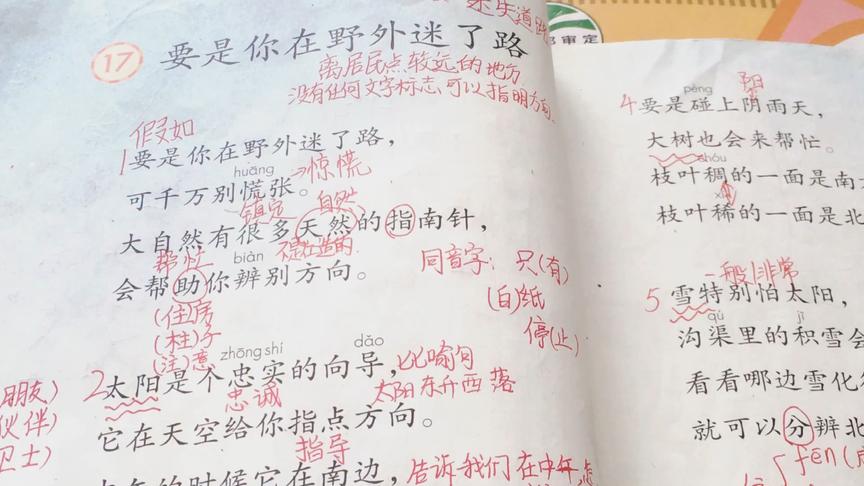 迷失道路
部审定
17 要是你在野外迷了路
离居民点较远的地方
没有任何文字标志,可以指明方向
假如
1要是你在野外迷了路,
huāng
可千万别慌张。→惊慌
镇定 自然
大自然有很多天然的指南针,
帮忙 biàn 不是人造的
会帮助你辨别方向。
同音字:只(有)
(白)纸
停(止)
(住)房
(柱)子
(注)意
zhōng shí dǎo
2太阳是个忠实的向导,比喻句
忠诚 太阳东升西落
朋友)
伙伴)
卫士)
它在天空给你指点方向。
指导
的时候它在南边,告诉我们在中午,
阳
pèng
4要是碰上阴雨天,
大树也会来帮忙。
chóu
枝叶稠的一面是南
xī
枝叶稀的一面是北
一般|非常
5雪特别怕太阳,
qú jī
沟渠里的积雪会
看看哪边雪化
就可以分辨北
fēn